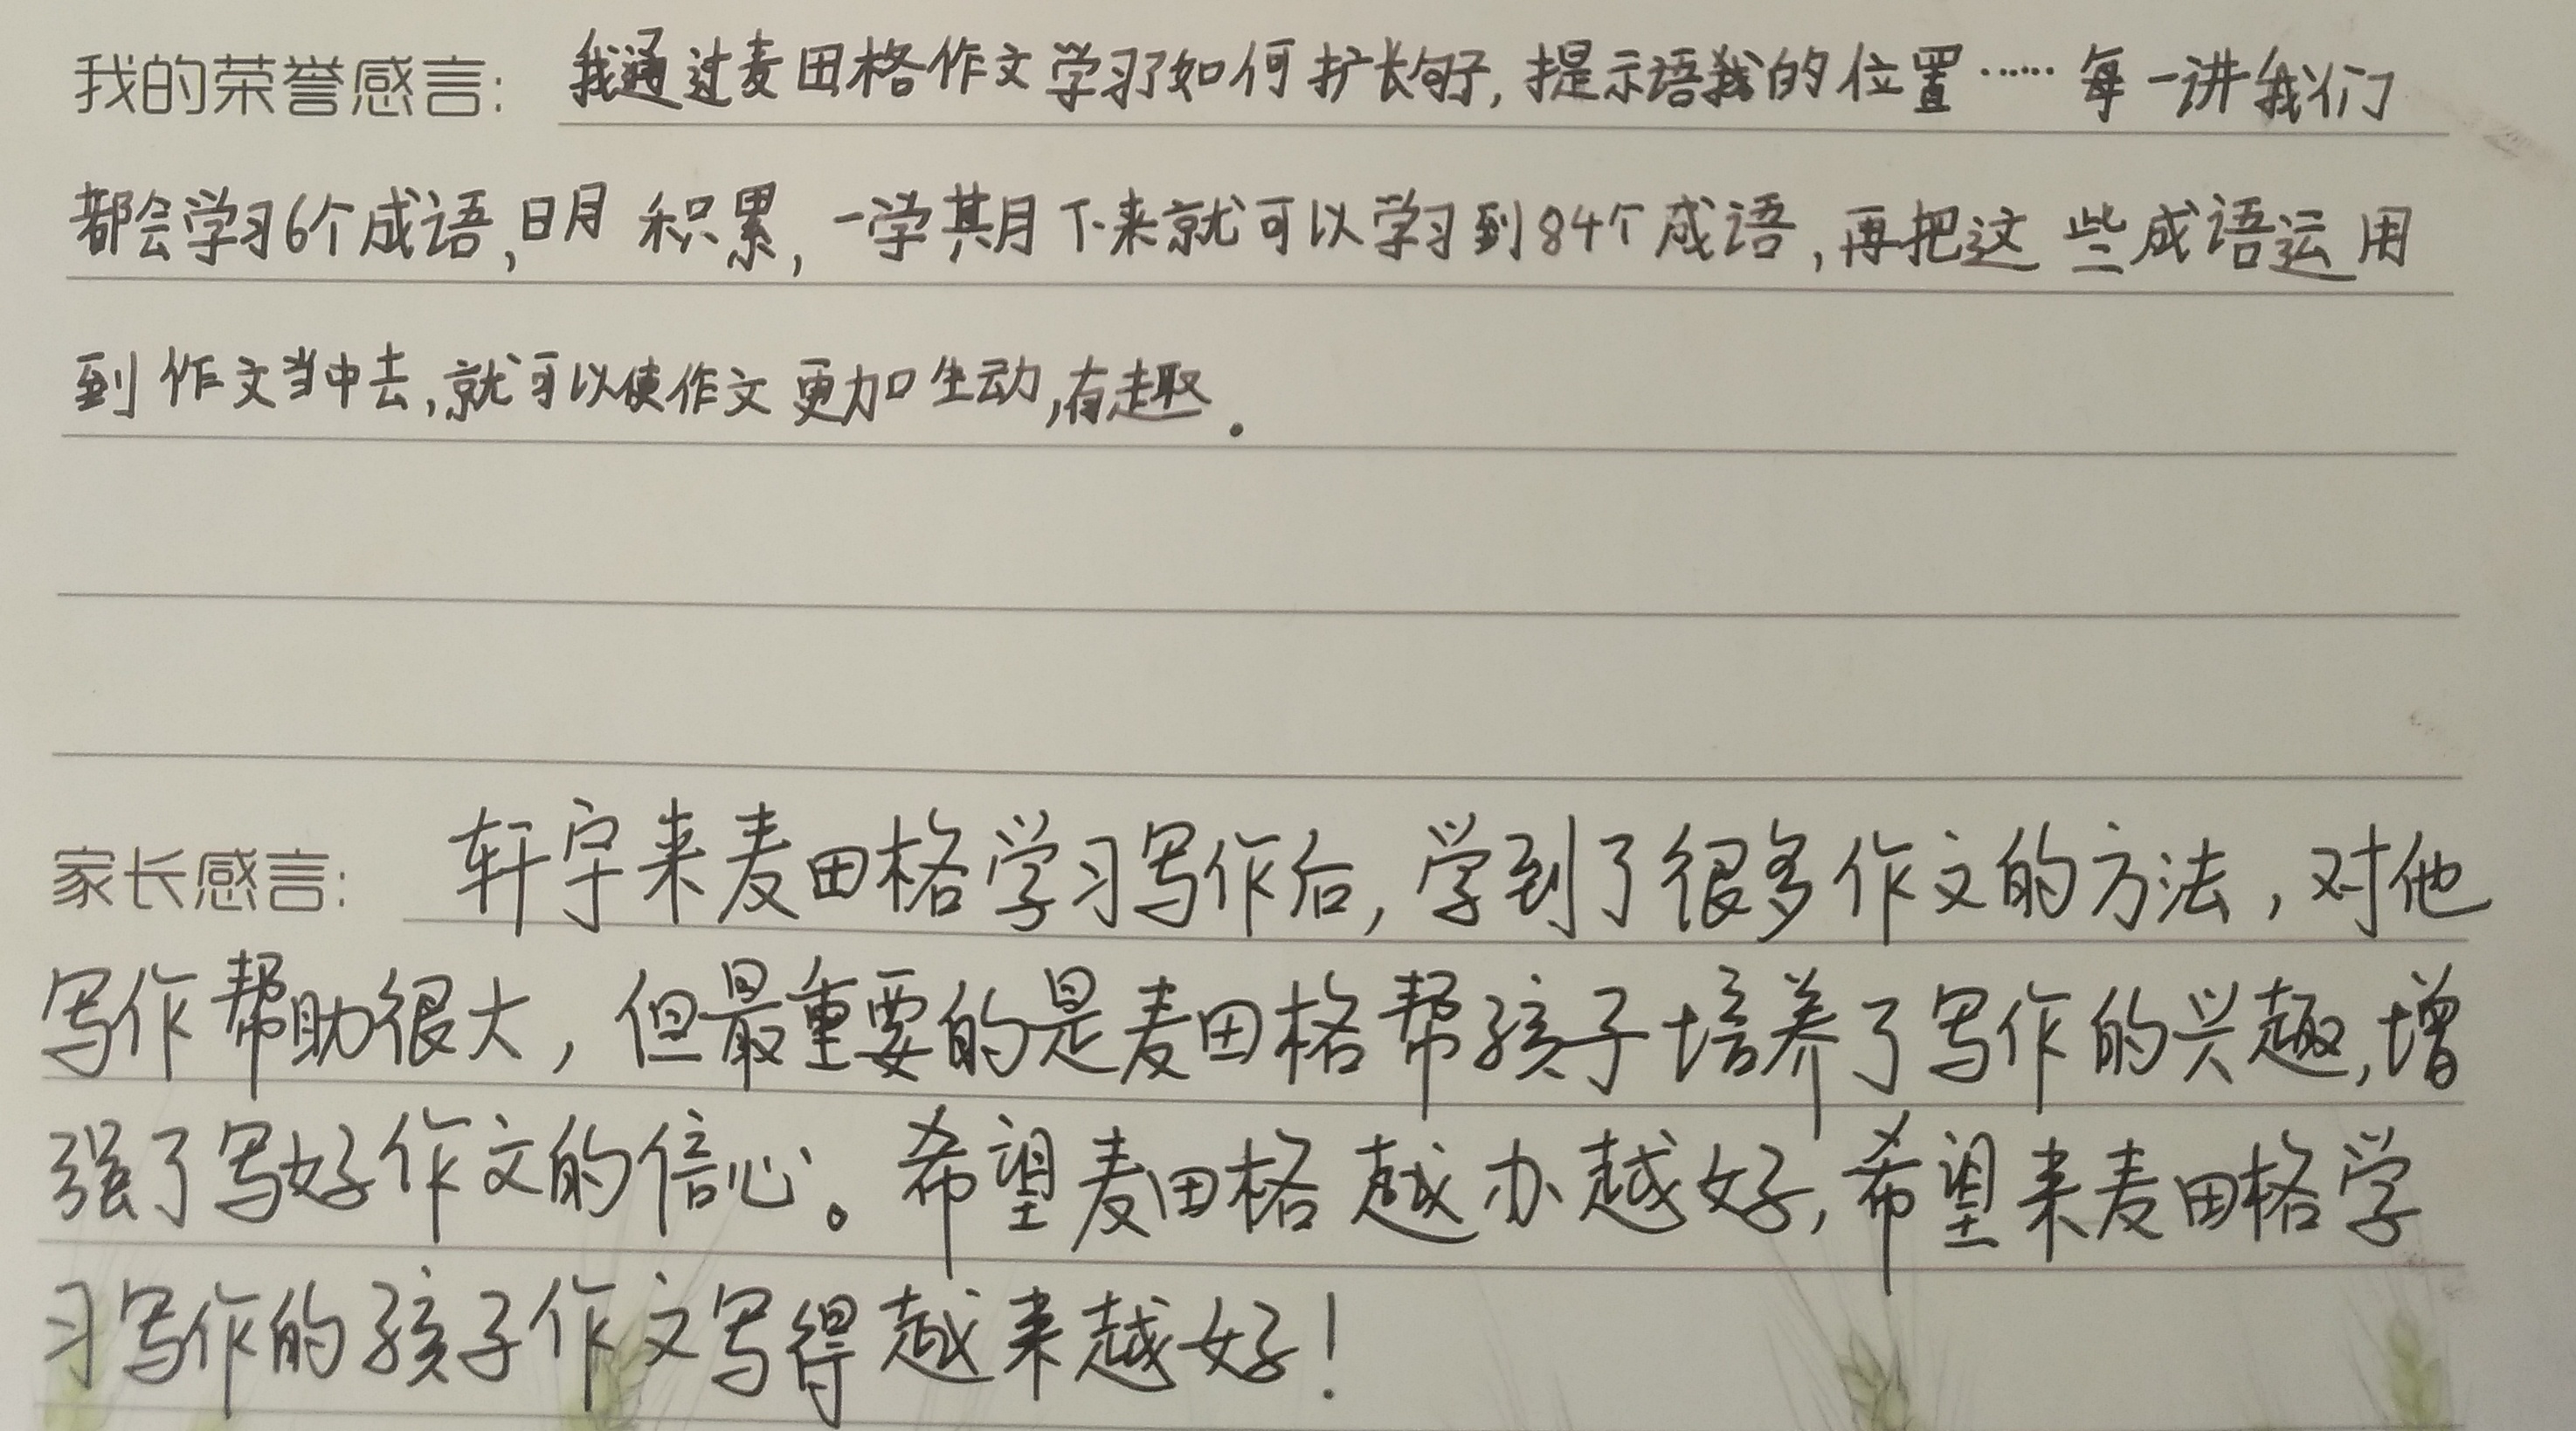 我的荣誉感言：我通过麦田格作文学习了如何扩长句子,提示语我的位置……每一讲我们
都会学习6个成语,日月积累,一学期下来就可以学习到84个成语,再把这些成语运用
到作文当中去,就可以使作文更加生动,有趣.
家长感言：轩宇来麦田格学习写作后,学到了很多作文的方法,对他
写作帮助很大,但最重要的是麦田格帮孩子培养了写作的兴趣,增
强了写好作文的信心。希望麦田格越办越好,希望来麦田格学
习写作的孩子作文写得越来越好!